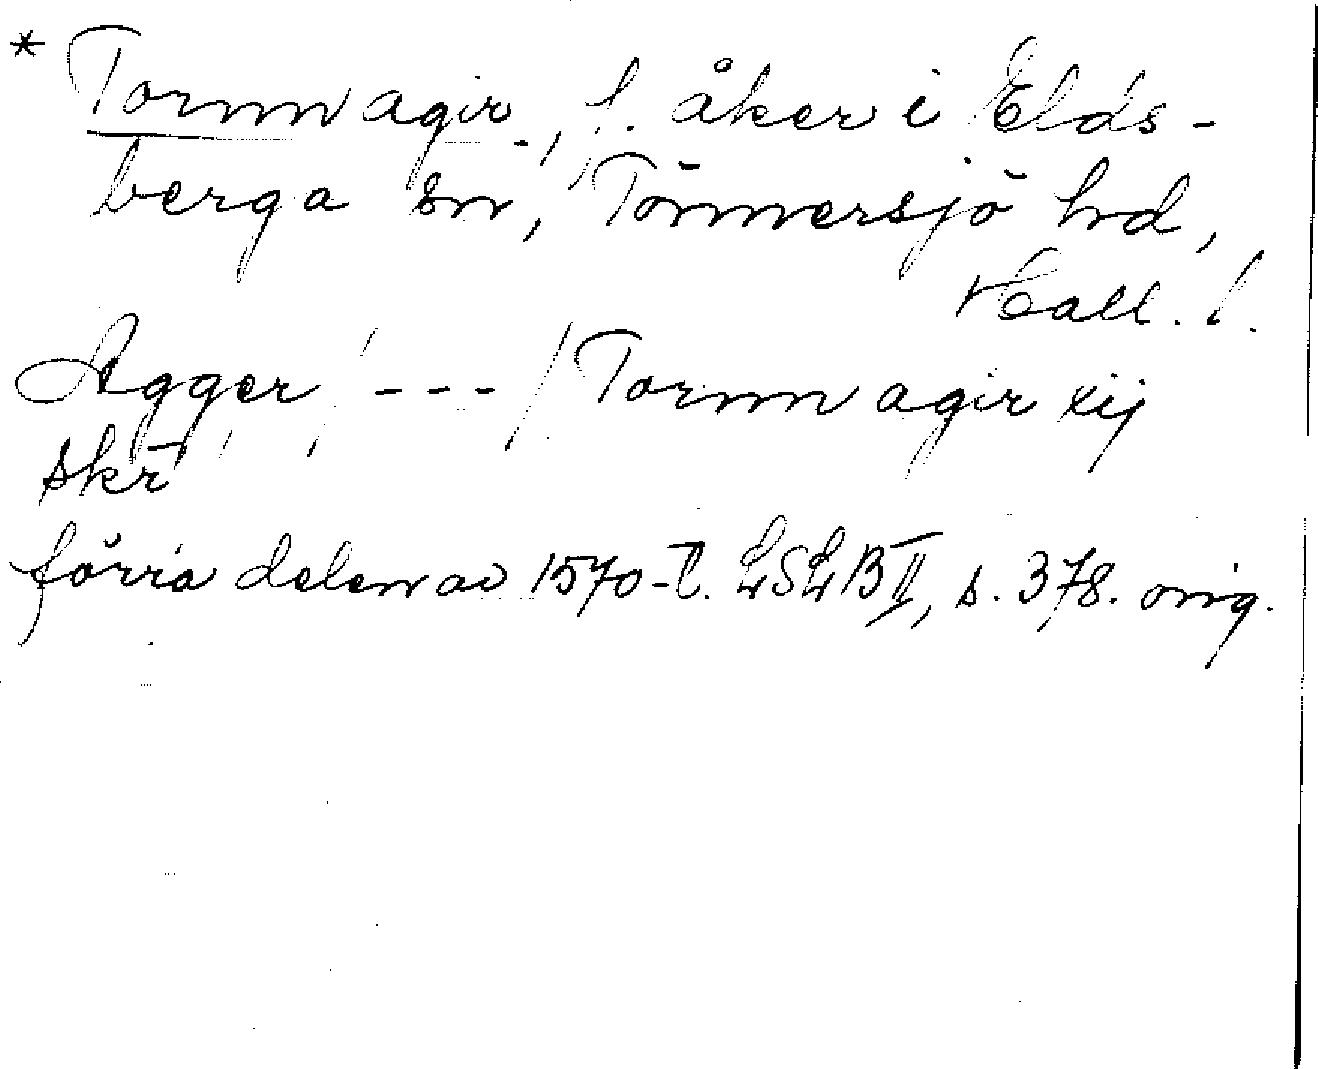 * Tornn agir, f. åker i Elds-
berga sn, Tönnersjö hd,
Hall. l.
Agger /---/ Tornn agir xij
skr
förra delen av 1570-t. LSLB II, s. 378. orig.